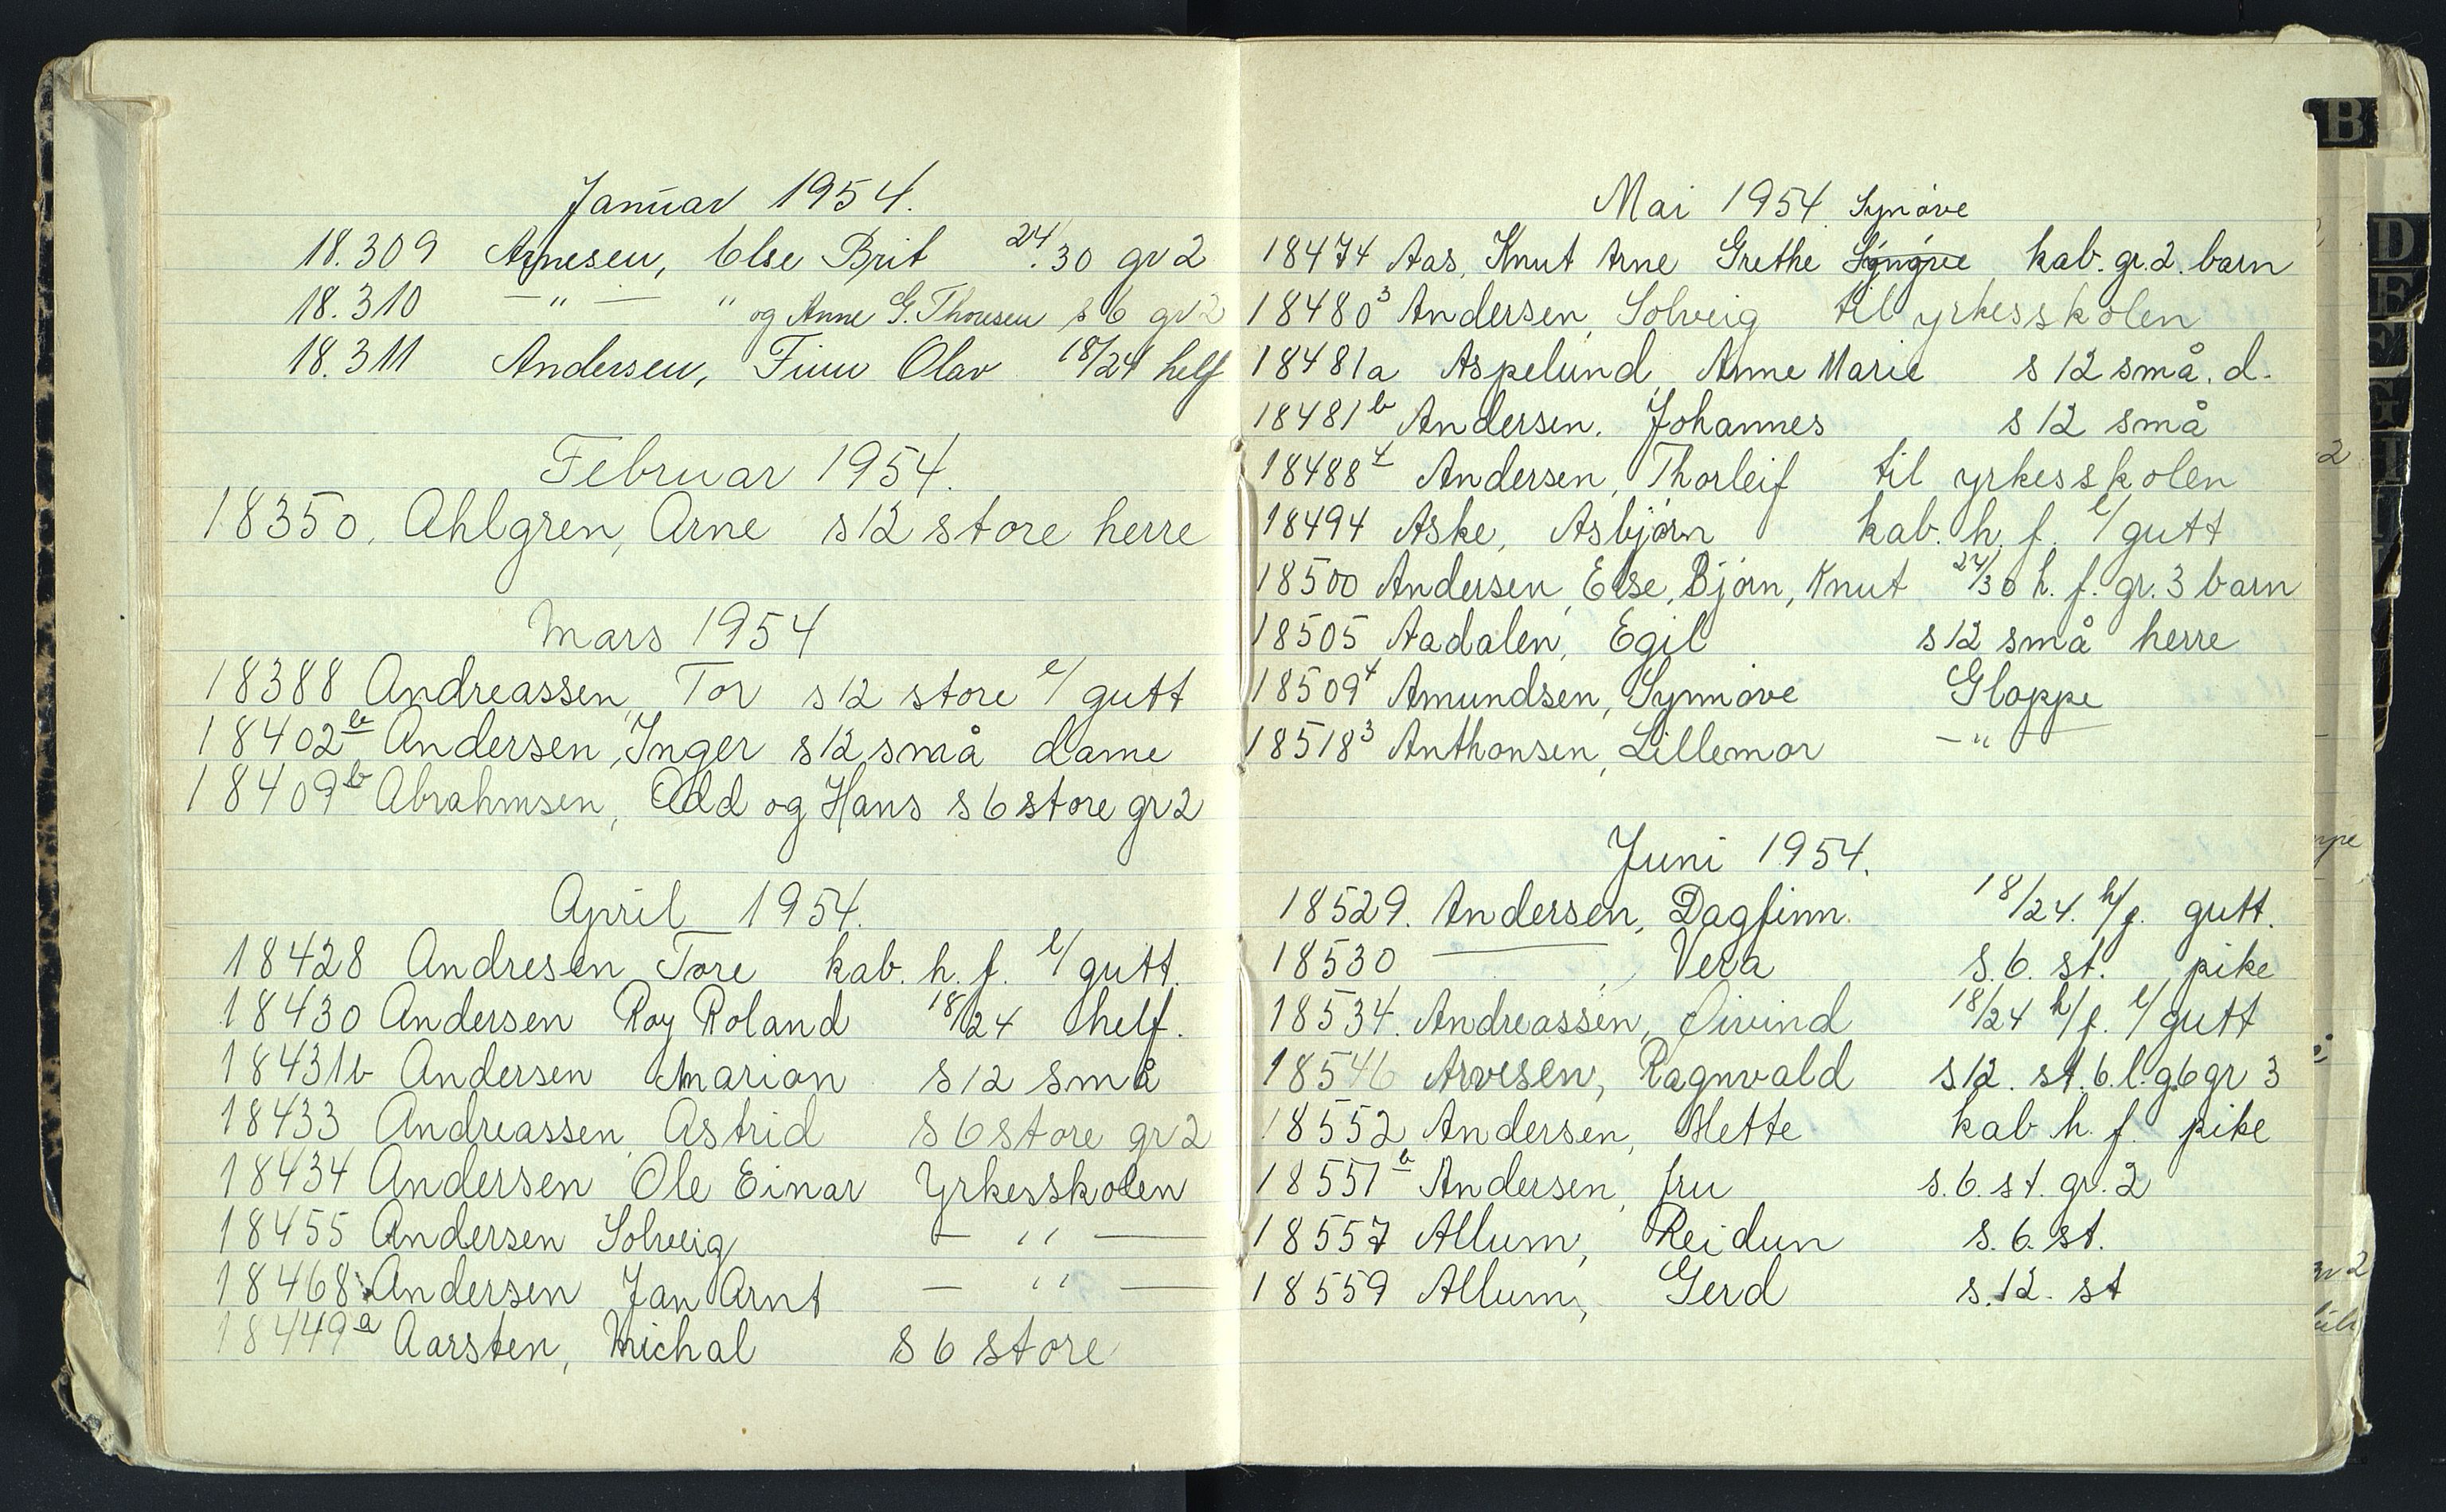 Januar 1954.
18.309 Arnesen, Else Brit 24/30 gr 2
18.310 — " — " og Anne G. Thoresen s 6 gr 2
18.311 Andersen, Finn Olav 18/24 helf
Februar 1954.
18350. Ahlgren, Arne s 12 store herre
Mars 1954
18388 Andreassen, Tor s 12 store l/ gutt
18402b Andersen, Inger s 12 små dame
18409b Abrahmsen, Odd og Hans s 6 store gr 2
April 1954.
18428 Andresen Tore kab. h. f. l/ gutt.
18430 Andersen Roy Roland 18/24 helf.
18431b Andersen Marion s 12 små
18433 Andreassen Astrid s 6 store gr 2
18434 Andersen Ole Einar Yrkesskolen
18455 Andersen Solveig — " —
18468 Andersen Jan Arnt — " —
18449a Aarsten, Michal s 6 store
Mai 1954 Synøve
18474 Aas, Knut Arne Grethe kab. gr. 2. barn
18480³ Andersen, Solveig til yrkesskolen
18481a Aspelund, Anne Marie s 12 små. d.
18481b Andersen. Johannes s 12 små
18488⁴ Andersen, Thorleif til yrkesskolen
18494 Aske, Asbjørn kab. h. f. l/ gutt
18500 Andersen, Else, Bjørn, Knut 24/30 h. f. gr. 3 barn
18505 Aadalen, Egil s 12 små herre
18509⁴ Amundsen, Synnøve Gloppe
18518³ Anthonsen, Lillemor — " —
Juni 1954.
18529. Andersen, Dagfinn. 18/24. h/f. gutt.
18530 — , Vera s. 6. st. pike
18534. Andreassen, Øivind 18/24 h/f. l/ gutt
18546 Arvesen, Ragnvald s 12. st. 6. l. g. 6 gr 3
18552 Andersen, Mette kab. h. f. pike
18551b Andersen, fru s. 6. st. gr. 2
18557 Allum, Reidun s. 6. st.
18559 Allum, Gerd s. 12. st
B
D
E
F
G
I